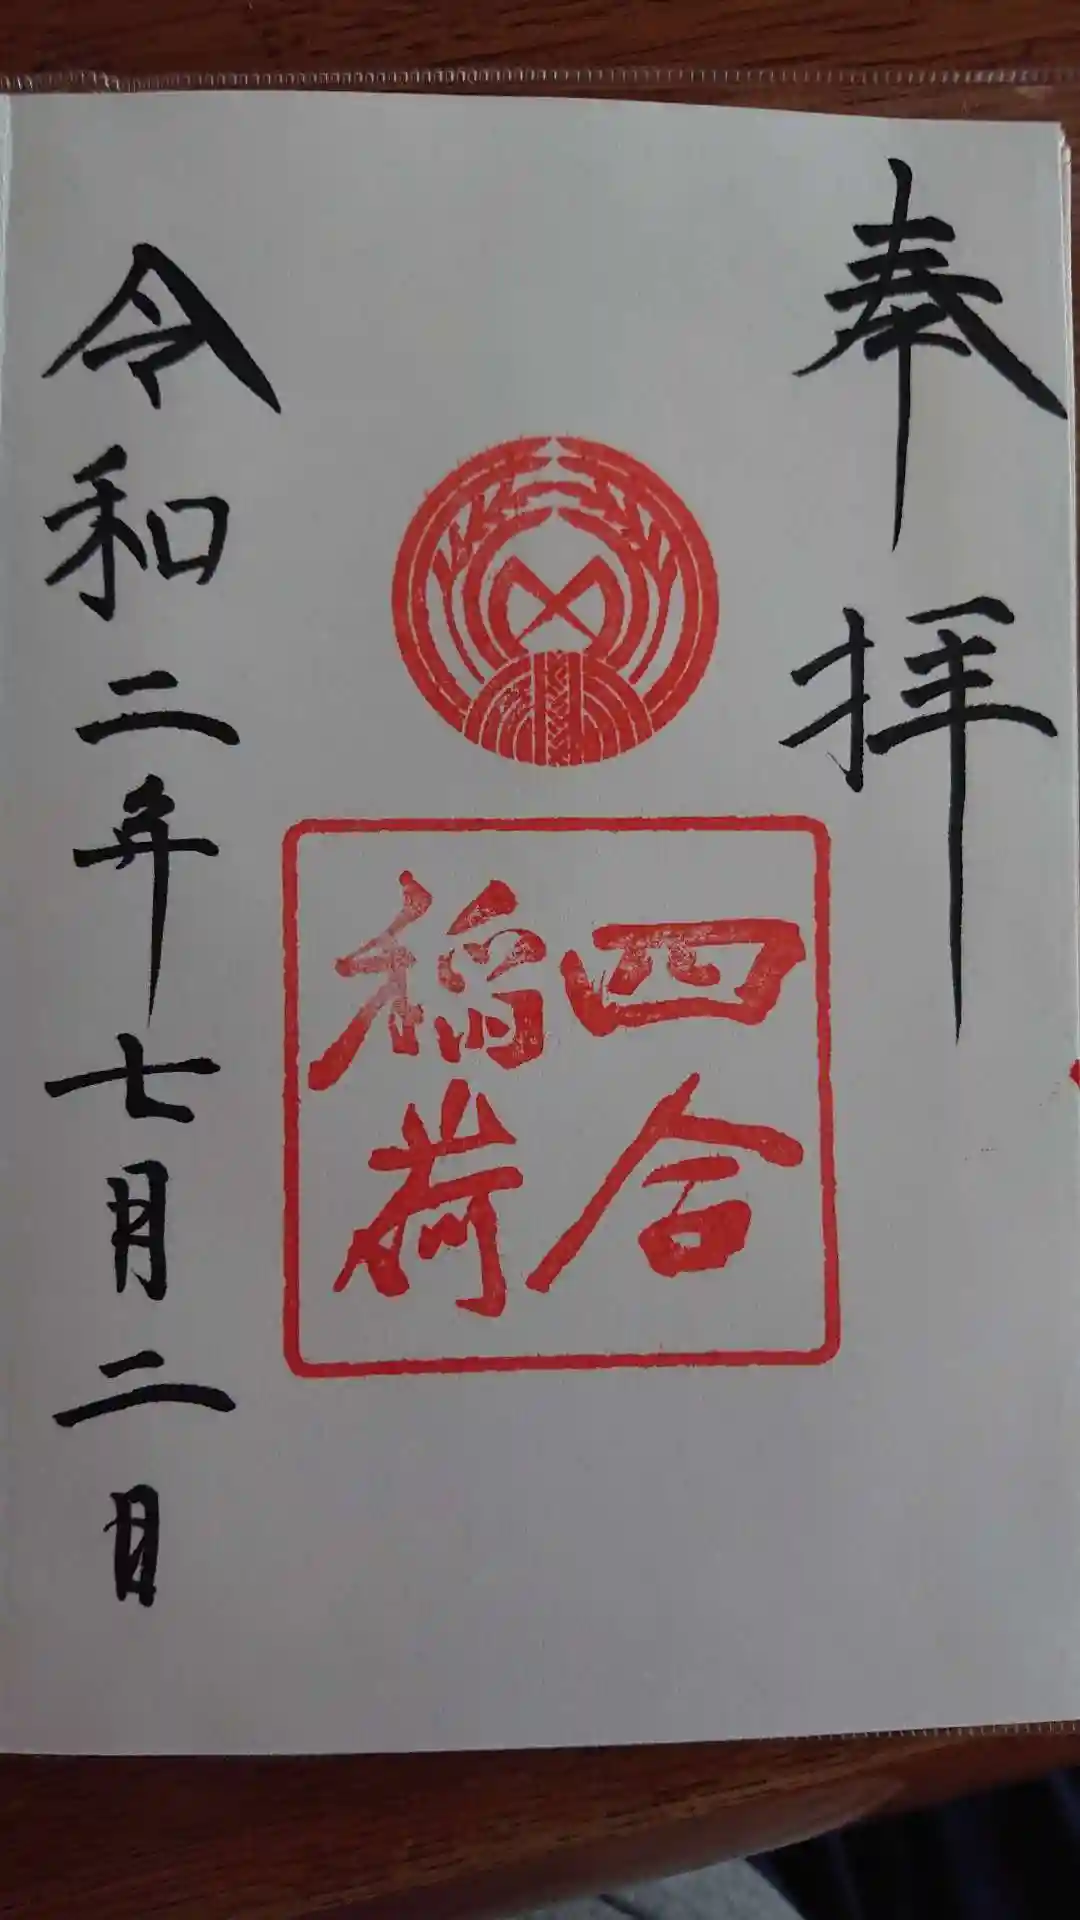 奉拝
四合
稲荷
令和二年七月二日